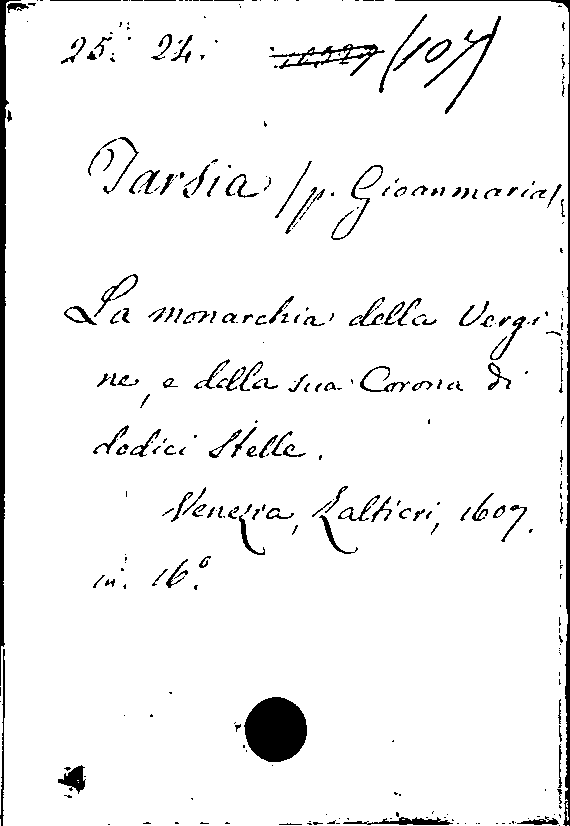 25. 24. (107)
Tarsia /p. Gioanmaria/
La monarchia della Vergi-
ne, e della sua Corona di
dodici Stelle.
Venezia, Zaltieri, 1607.
in 16.º